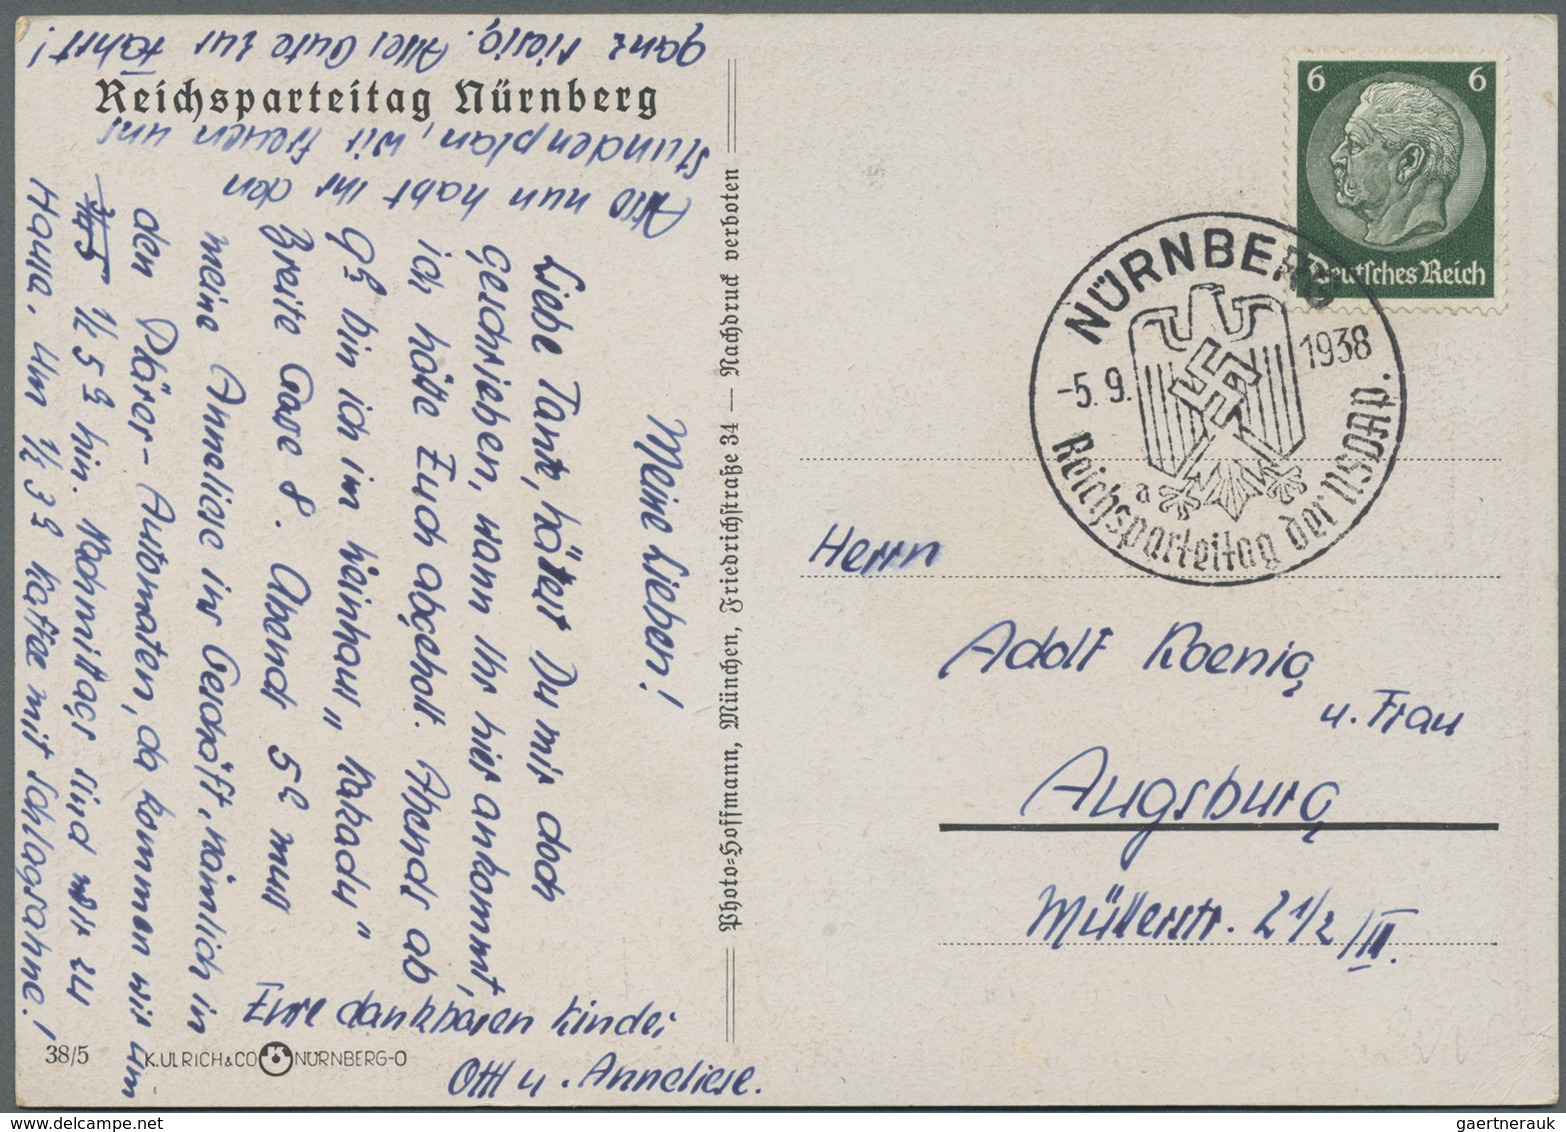 Reichsparteitag Nürnberg
Meine Lieben!
Liebe Tante, hättest Du mir doch
geschrieben, wann Ihr hier ankommt,
ich hätte Euch abgeholt. Abends ab
9h bin ich im Weinhaus „Kakadu“
Breite Gasse 8. Abends 5h muss
meine Anneliese ins Geschäft, nämlich in
den Plärer-Automaten, da kommen wir um
1/2 5h hin. Nachmittags sind wir zu
Hause. Um 1/2 3h Kaffee mit Schlagsahne!
Also nun habt Ihr den
Stundenplan, wir freuen uns
ganz riesig. Alles Gute zur Fahrt!
Eure dankbaren Kinder
Ottl u. Anneliese.
38/5
K.ULRICH & CO NÜRNBERG-O
Photo-Hoffmann, München, Friedrichstraße 34 — Nachdruck verboten
6 6
Deutsches Reich
NÜRNBERG
-5. 9. 1938
a
Reichsparteitag der NSDAP.
Herrn
Adolf Koenig
u. Frau
Augsburg
Müllerstr. 2 1/2 /III.
gaertnerauk